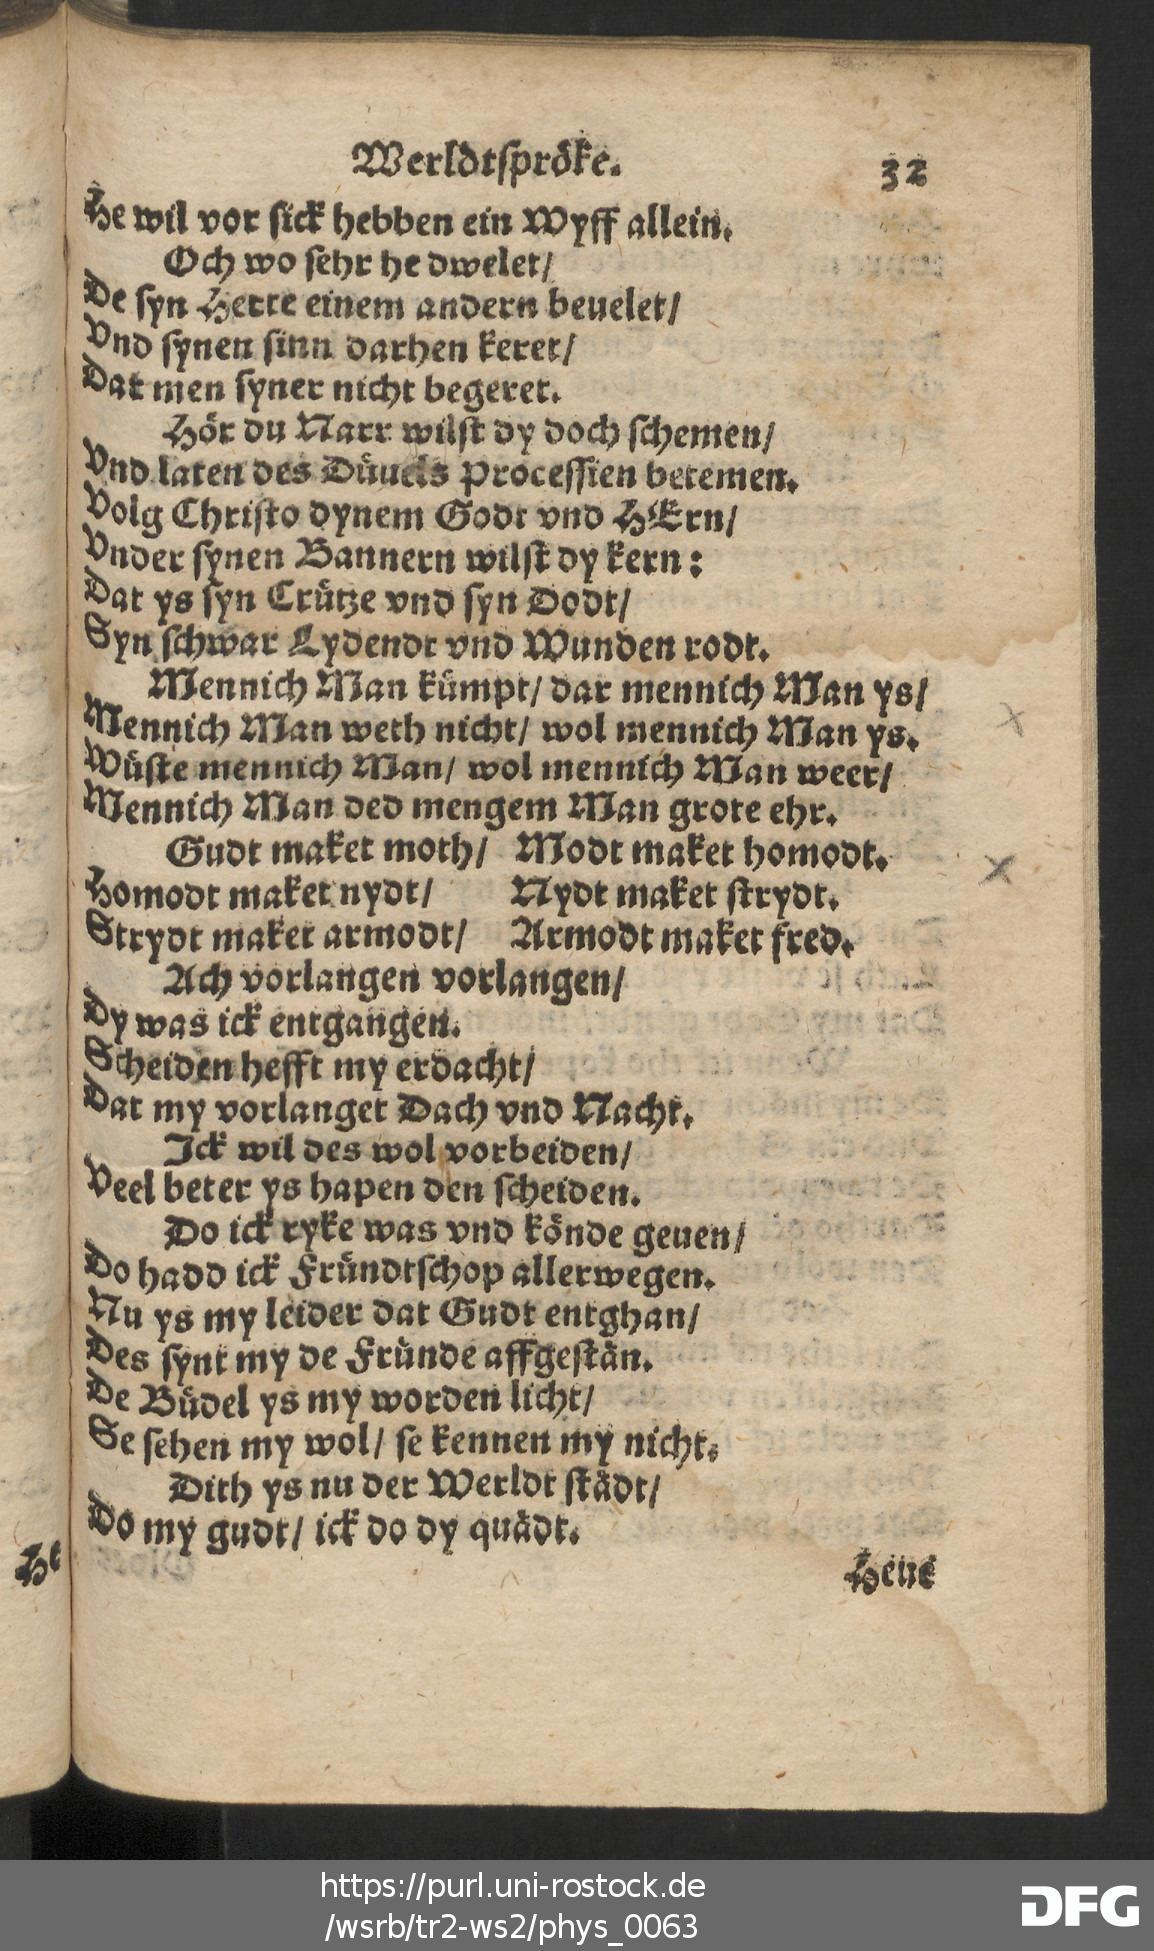 Werldtspröke. 32
He wil vor sick hebben ein Wyff allein.
Och wo sehr he dwelet/
De syn Herte einem andern beuelet/
Vnd synen sinn darhen keret/
Dat men syner nicht begeret.
Hör du Narr wilst dy doch schemen/
Vnd laten des Düuels Processien betemen.
Volg Christo dynem Godt vnd HErn/
Vnder synen Bannern wilst dy kern:
Dat ys syn Crütze vnd syn Dodt/
Syn schwar Lydendt vnd Wunden rodt.
Mennich Man kümpt/ dar mennich Man ys/
Mennich Man weth nicht/ wol mennich Man ys.
Wüste mennich Man/ wol mennich Man weer/
Mennich Man ded mengem Man grote ehr.
Gudt maket moth/ Modt maket homodt.
Homodt maket nydt/ Nydt maket strydt.
Strydt maket armodt/ Armodt maket fred.
Ach vorlangen vorlangen/
Dy was ick entgangen.
Scheiden hefft my erdacht/
Dat my vorlanget Dach vnd Nacht.
Ick wil des wol vorbeiden/
Veel beter ys hapen den scheiden.
Do ick ryke was vnd könde geuen/
Do hadd ick Fründtschop allerwegen.
Nu ys my leider dat Gudt entghan/
Des synt my de Fründe affgestän.
De Büdel ys my worden licht/
Se sehen my wol/ se kennen my nicht.
Dith ys nu der Werldt städt/
Do my gudt/ ick do dy quädt.
He
Heue
https://purl.uni-rostock.de
/wsrb/tr2-ws2/phys_0063
DFG